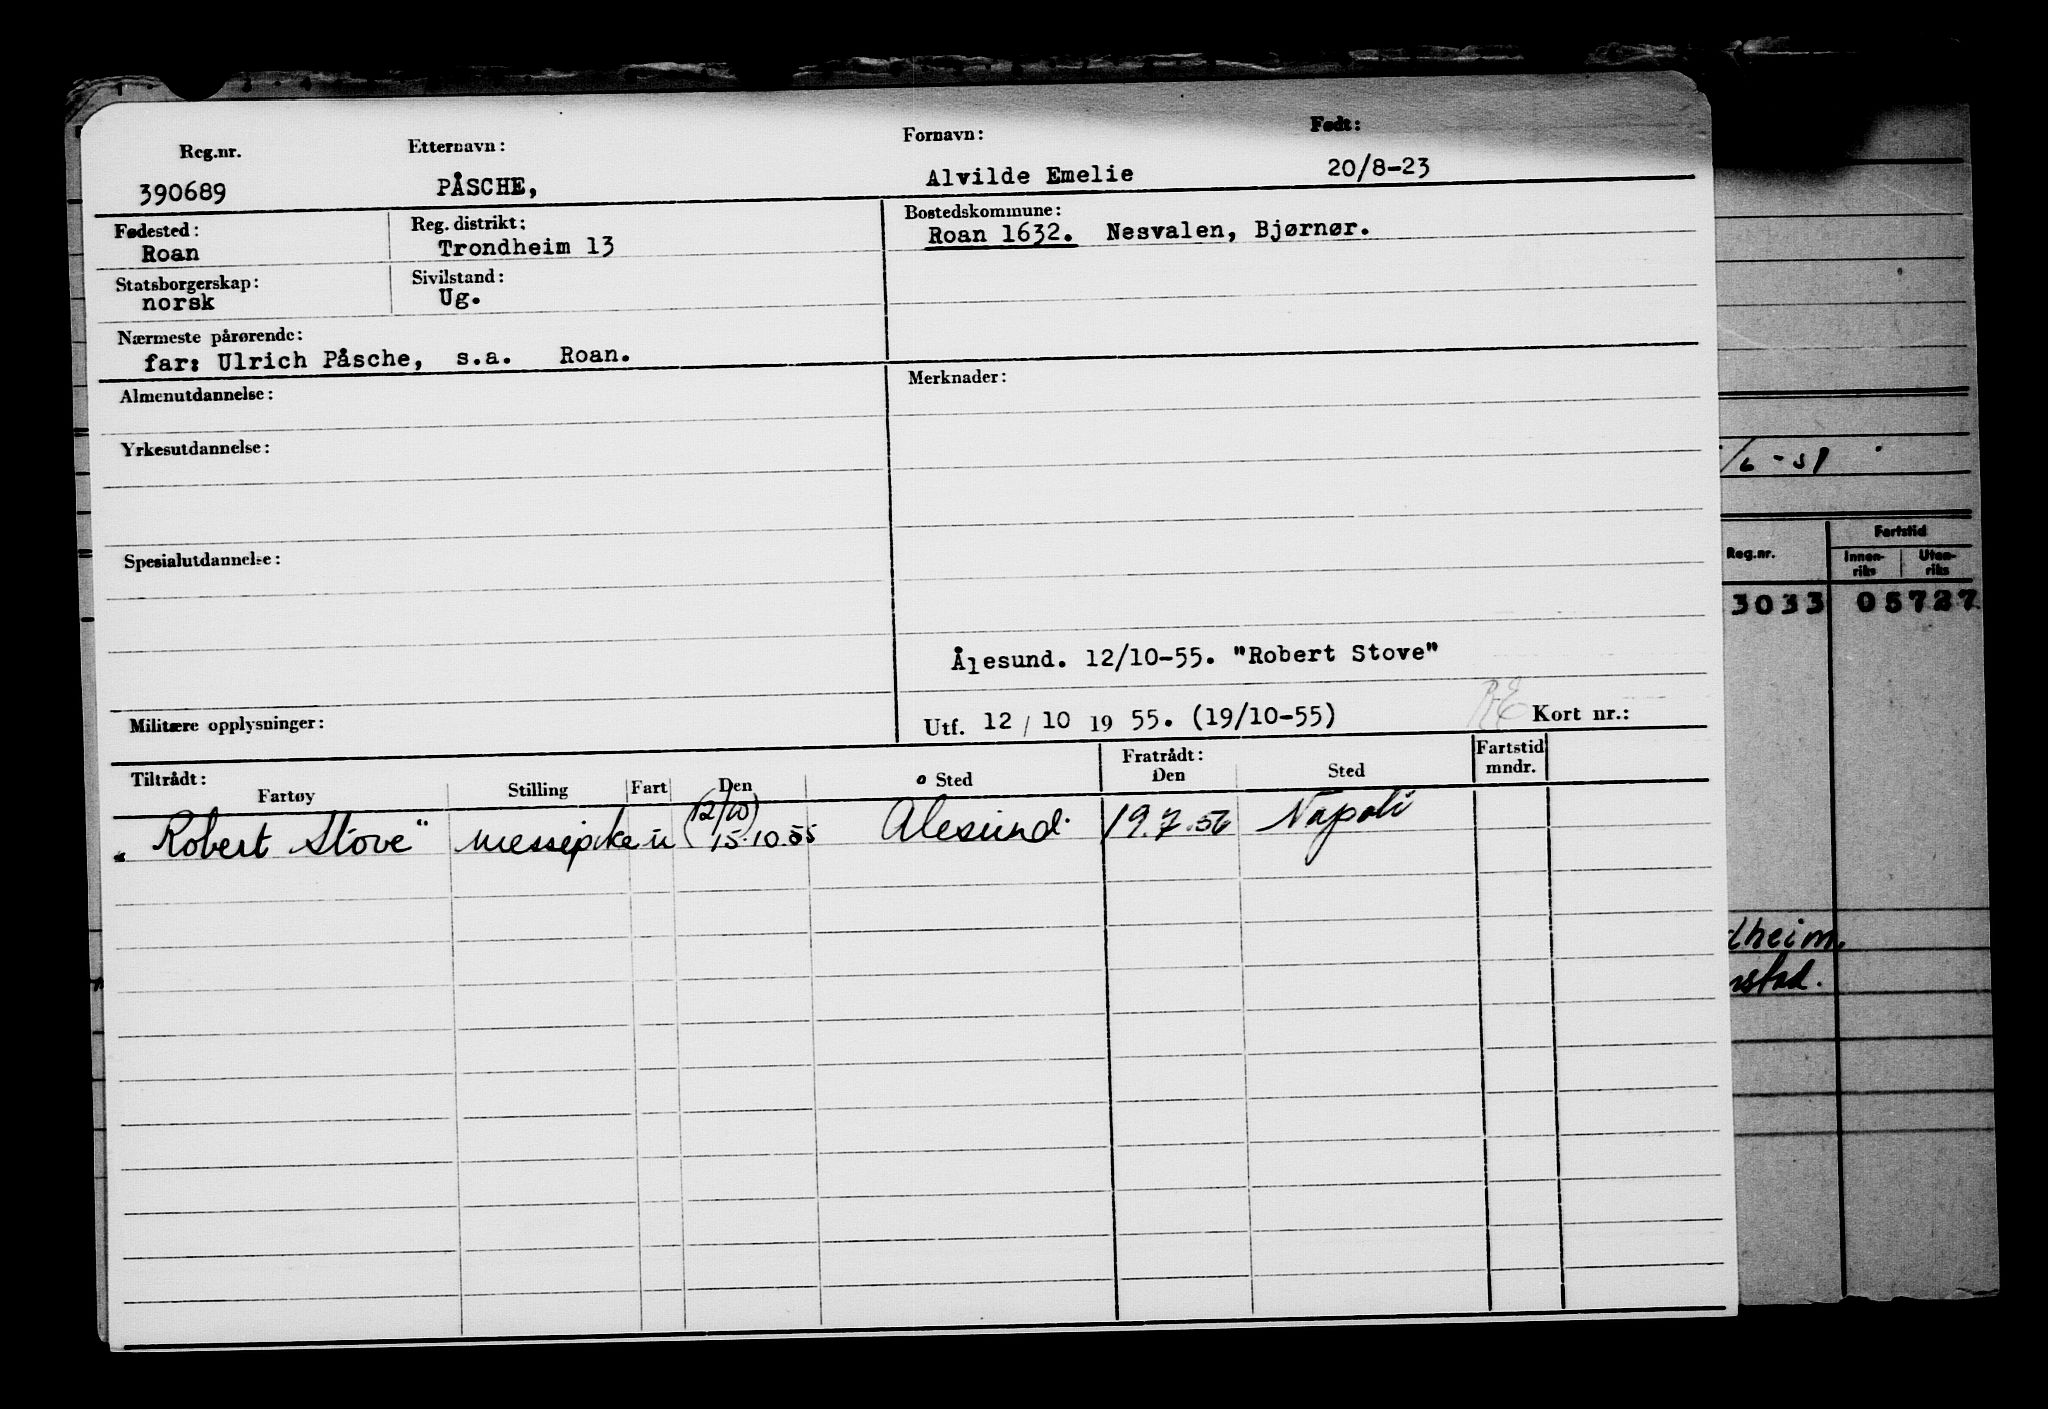 Reg.nr. Etternavn: Fornavn: Født:
390689 PÅSCHE, Alvilde Emelie 20/8-23
Fødested: Reg. distrikt: Bostedskommune:
Roan Trondheim 13 Roan 1632. Nesvalen, Bjørnør.
Statsborgerskap: Sivilstand:
norsk Ug.
Nærmeste pårørende:
far: Ulrich Påsche, s.a. Roan.
Almenutdannelse: Merknader:
Yrkesutdannelse:
Spesialutdannelse:
Ålesund. 12/10-55. "Robert Stove"
Militære opplysninger: Utf. 12 / 10 19 55. (19/10-55) Kort nr.:
Tiltrådt: Fratrådt: Fartstid
Fartøy Stilling Fart Den Sted Den Sted mndr.
(12/10)
"Robert Stove" messepike u 15.10.55 Ålesund. 19.7.56 Napoli
/6-51
Reg.nr. Fartstid
Innen-riks Uten-riks
3033 05727
dheim.
stad.